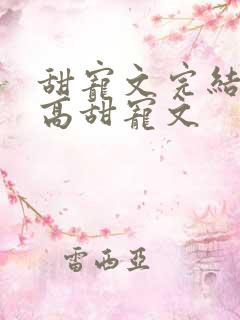 甜寵文完結
高甜寵文
雷西亞